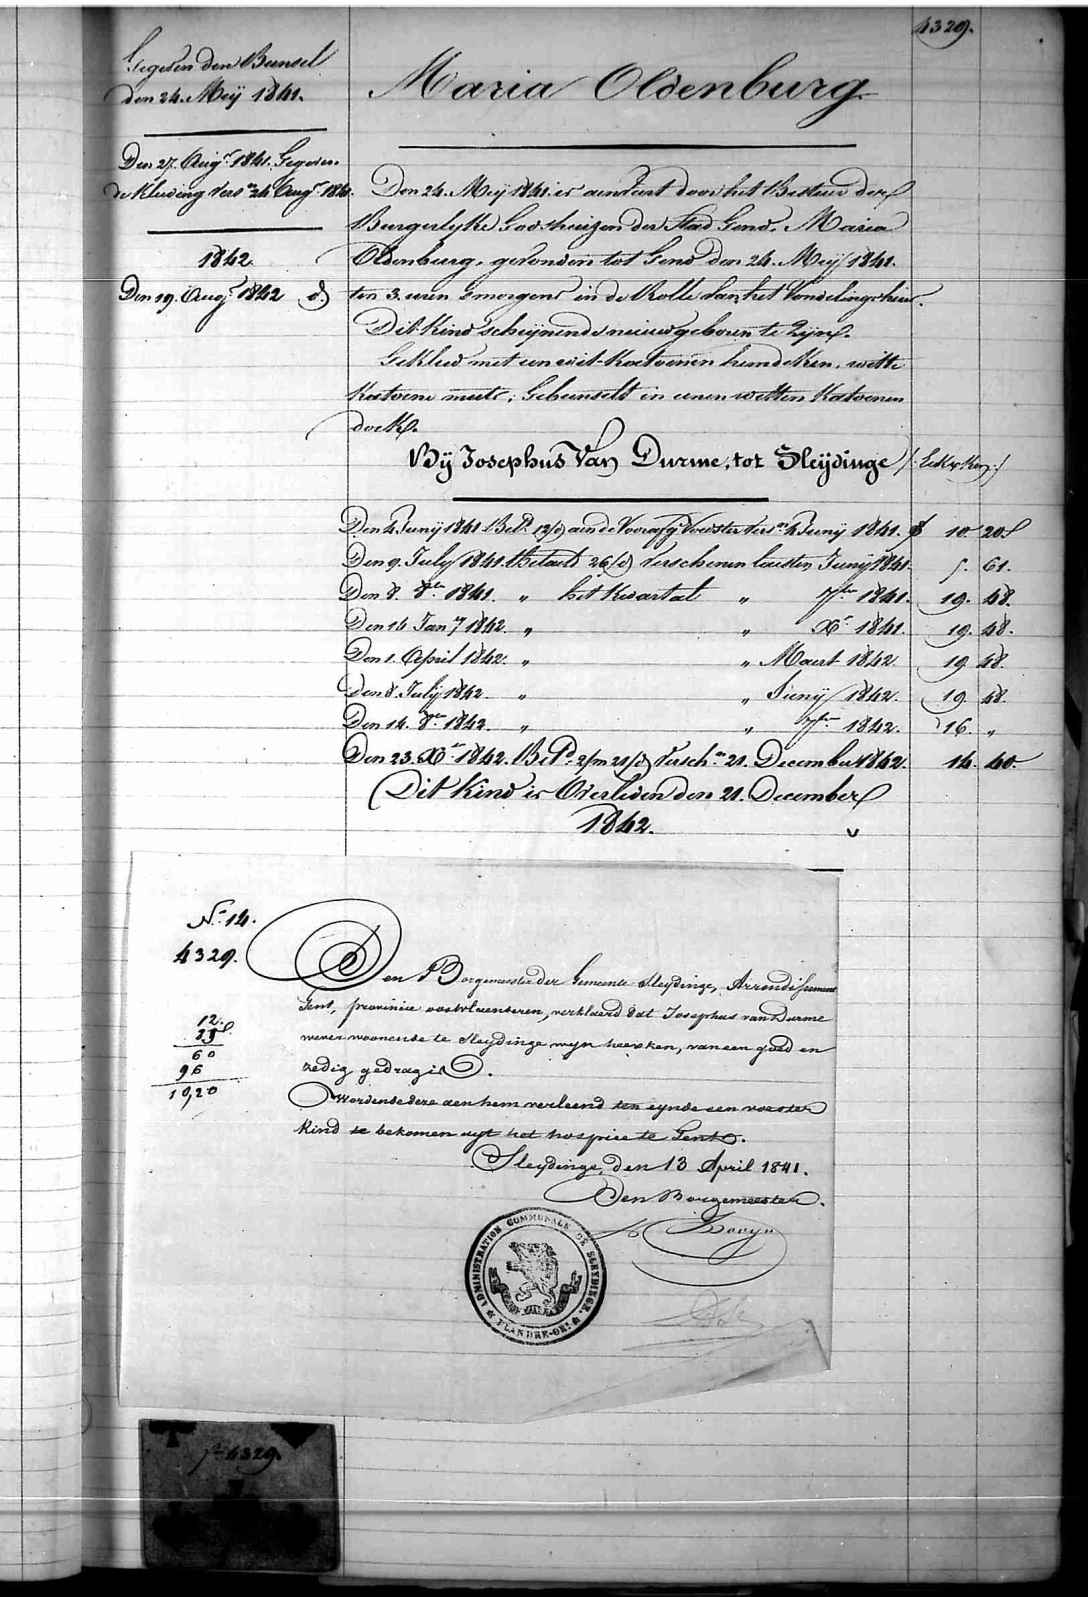 4329.
Gegeven den Bunsel
den 24. Meij 1841.
Den 27. Augt 1841. Gegeven
de Kleeding vers. 24 Augt 1841.
1842
Den 19. Augt 1842 d.o
Maria Oldenburg
Den 24. Meij 1841. is aenveert door het Bestuer der
Burgerlyke Godshuizen der Stad Gend, Maria
Oldenburg, gevonden tot Gend den 24. Meij 1841.
ten 3. uren smorgens in de Rolle van het Vondelingshuis.
Dit Kind scheijnende nieuwgeboren te Zijn.
Gekleed met een wit Katoenen hemdeken, witte
Katoene muts; Gebunselt in eenen witten Katoenen
doek.
Bij Josephus Van Durme, tot Sleijdinge
Den 4. Junij 1841. Bett. 12/d aen de Voorafg. Voedster vers. 4 Junij 1841. f 10. 20
Den 9. July 1841. Betaelt 26/d verschenen laesten Junij 1841. 5. 61.
Den 8. 8.re 1841. " het Kwartael " 7bre 1841. 19. 48.
Den 14. Jan.y 1842. " " Xr 1841. 19. 48.
Den 1. April 1842. " " Maert 1842 19. 48.
Den 8. July 1842. " " Junij 1842. 19. 48.
Den 14. 8.re 1842. " " 7bre 1842. 16. "
Den 23. Xr 1842. Bet.d 2/m 21/d Versch.n 21. December 1842. 14. 40.
Dit Kind is Overleden den 21. December
1842.
N.o 14.
4329.
12.
60
96
10,20
Den Borgemeester der Gemeente Sleydinge, Arrondissement
Gent, provincie oostvlaenderen, verklaerd dat Josephus van Durme
wever woonende te Sleydinge wyk heesken, van een goed en
zedig gedrag is.
Wordende deze aen hem verleend ten eynde een voester
kind te bekomen uyt het hospice te Gent.
Sleydinge, den 13 April 1841.
Den Borgemeester.
ADMINISTRATION COMMUNALE DE SLEYDINGE.
FLANDRE-ORLE
4329.